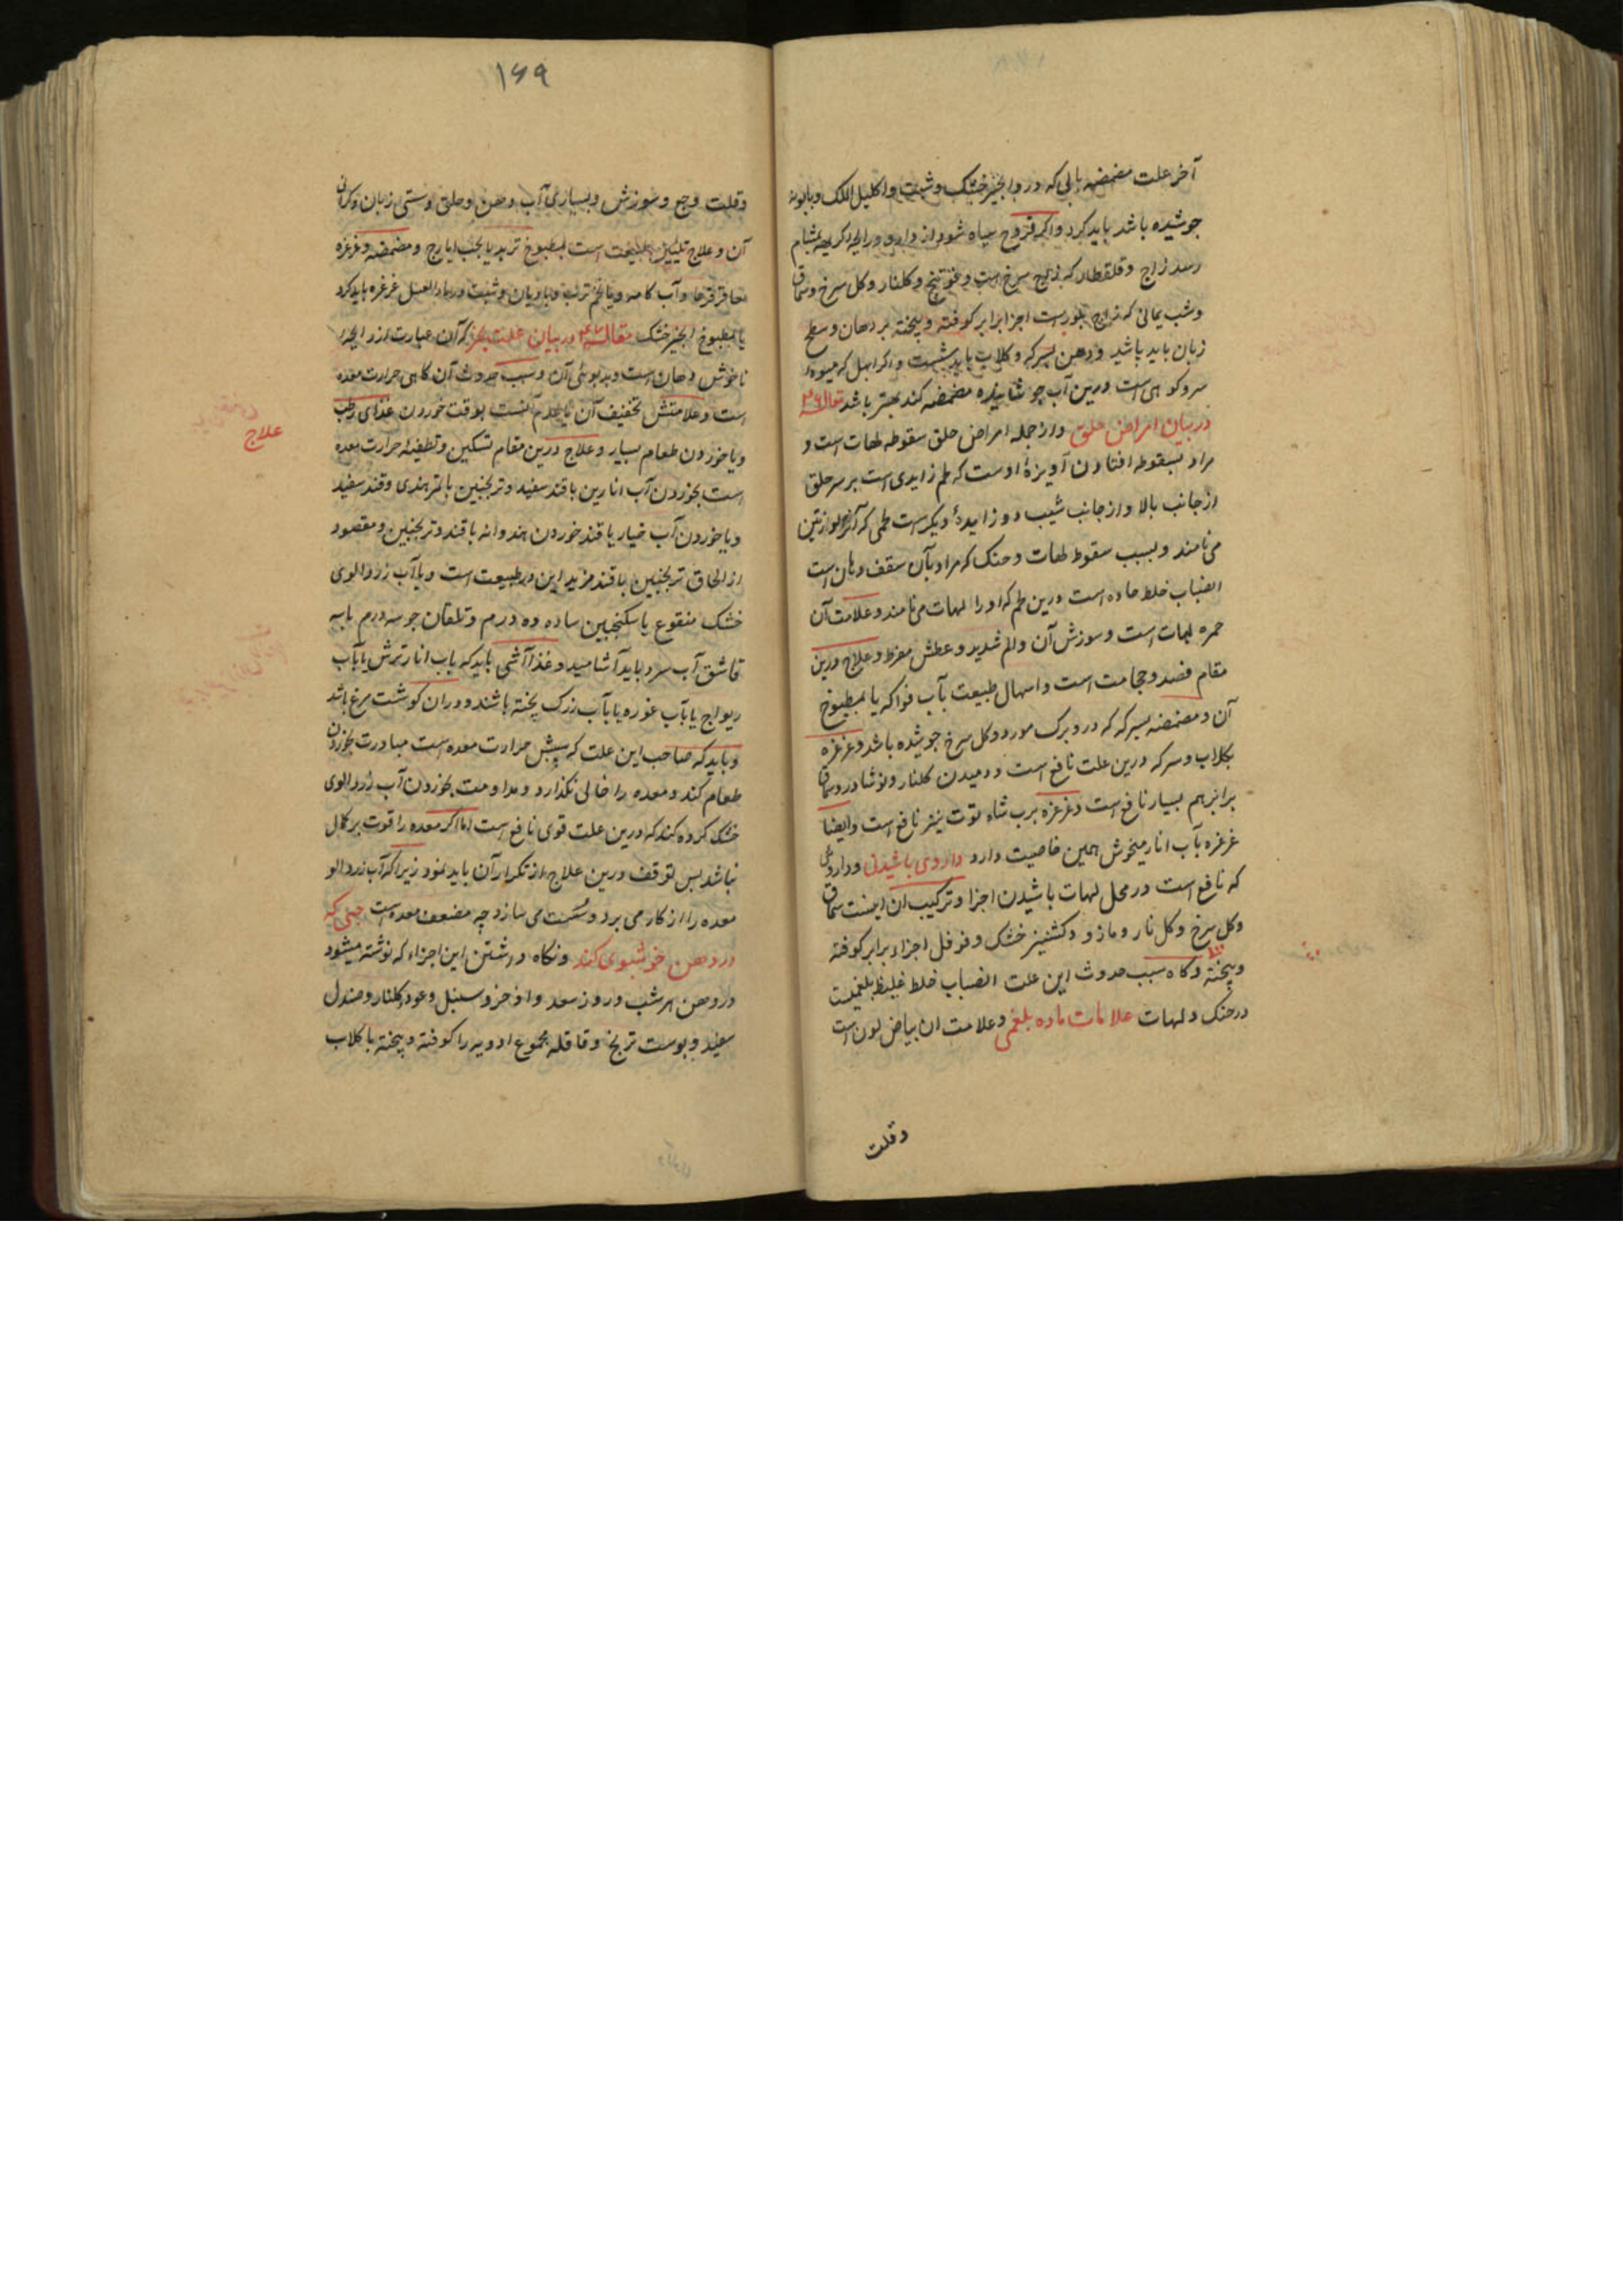 آخر علت مضمضه بابی که درو انجیر خشک و شبت و اکلیل الملک و بابونه
جوشیده باشد باید کرد و اگر قروح سیاه شود از دارو و رایحه کریهه بمشام
رسد زاج و قلقطار که زاج سرخ است و کلنار و کل سرخ و سماق
و شب یمانی که زاج بلورست اجزا برابر کوفته و بیخته بر دهان و سطح
زبان باید باشید و دهن بسرکه و کلاب باید شست و اکر ابهل که میوه
سرو کوهی است درین آب جوشانیده مضمضه کند بهتر باشد مقاله ۴۶
در بیان امراض حلق و از جمله امراض حلق سقوطه لهات است و
مراد بسقوطه افتادن آویزهٔ اوست که لحم زایدی است بر سر حلق
از جانب بالا و از جانب شیب دو زایدهٔ دیکرست لحمی که آنرا لوزتین
می نامند و بسبب سقوط لهات و حنک که مراد بآن سقف دهان است
انصباب خلط حاده است درین لحم که او را لهات می نامند و علامت آن
حمره لهات است و سوزش آن و الم شدید و عطش مفرط و علاج درین
مقام فصد و حجامت است و اسهال طبیعت بآب فواکه یا بمطبوخ
آن و مضمضه بسرکه که درو برک مورد و کل سرخ جوشیده باشد و غرغره
بکلاب و سرکه درین علت نافع است و دمیدن کلنار و نوشادر و سماق
برابر هم بسیار نافع است و غرغره برب شاه توت نیز نافع است و ایضا
غرغره بآب انار میخوش همین خاصیت دارد داروی باشیدنی و داروئی
که نافع است در محل لهات باشیدن اجزا و ترکیب ان اینست سماق
و کل سرخ و کل نار و مازو و کشنیز خشک و فوفل اجزاء برابر کوفته
و بیخته و کاه سبب حدوث این علت انصباب خلط غلیظ بلغمیست
در حنک و لهات علامات ماده بلغمی و علامت ان بیاض لون است
وقلت
۱۶۹
وقلت وجع و سوزش و بسیاری آب دهن و حلق و سستی زبان و کرانی
آن و علاج تلیین طبیعت است بمطبوخ تربد یا بحب ایارج و مضمضه و غرغره
عاقرقرحا و آب کامه و یا تخم ترب و بادیان و شبت و ماء العسل غرغره باید کرد
یا بمطبوخ انجیر خشک مقاله ۴۷ در بیان علت بخر که آن عبارت از رایحه
ناخوش دهان است و بدبوئی آن و سبب حدوث آن کاهی حرارت معده
است و علامتش تخفیف آن یا عدم آنست بوقت خوردن غذای رطب
و یا خوردن طعام بسیار و علاج درین مقام تسکین و تطفیهٔ حرارت معده
است بخوردن آب انارین با قند سفید و ترنجبین یا تمر هندی و قند سفید
و یا خوردن آب خیار یا قند خوردن هندوانه با قند و ترنجبین و مقصود
از الحاق ترنجبین با قند مزید لین در طبیعت است و یا آب زردالوی
خشک منقوع با سکنجبین ساده ده درم و تلقان جو سه درم با سه
قاشق آب سرد باید آشامید و غذا آشی باید که بآب انار ترش یا بآب
ریواج یا بآب غوره یا بآب زرک پخته باشند و دران کوشت مرغ باشد
و باید که صاحب این علت که سببش حرارت معده است مبادرت بخوردن
طعام کند و معده را خالی نکذارد و مداومت بخوردن آب زردالوی
خشک کرده کند که درین علت قوی نافع است اما اکر معده را قوت بر کمال
نباشد پس توقف درین علاج از تکرار آن باید نمود زیرا که آب زردالو
معده را از کار می برد و سست می سازد چه مضعف معده است حبی که
دردهن خوشبوی کند و نکاه داشتن این اجزاء که نوشته میشود
در دهن هر شب و روز سعد و اذخر و سنبل و عود و کلنار و صندل
سفید و پوست ترنج و قاقله مجموع ادویه را کوفته و بیخته با کلاب
علاج